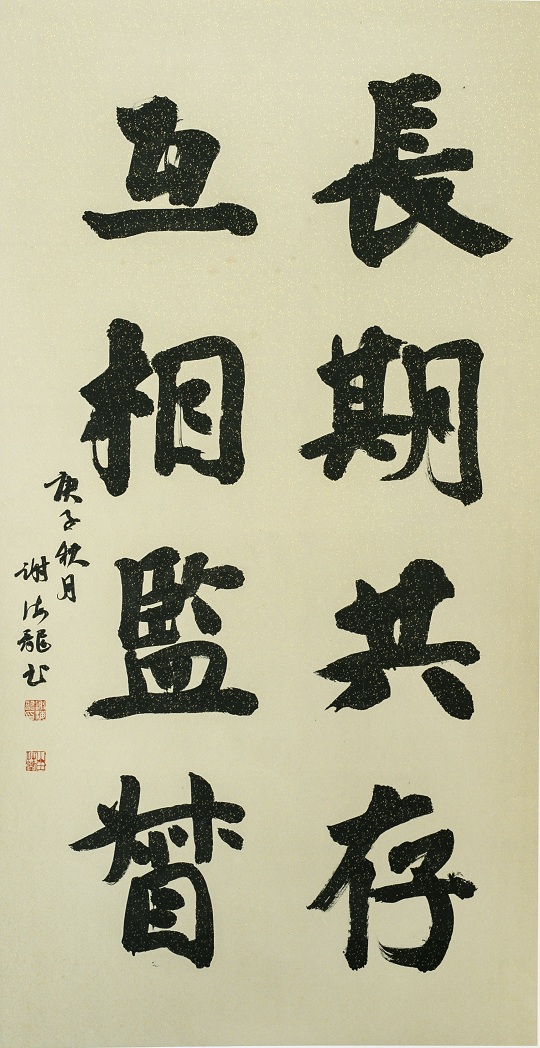 長期共存
互相監督
庚子秋月
謝德龍书